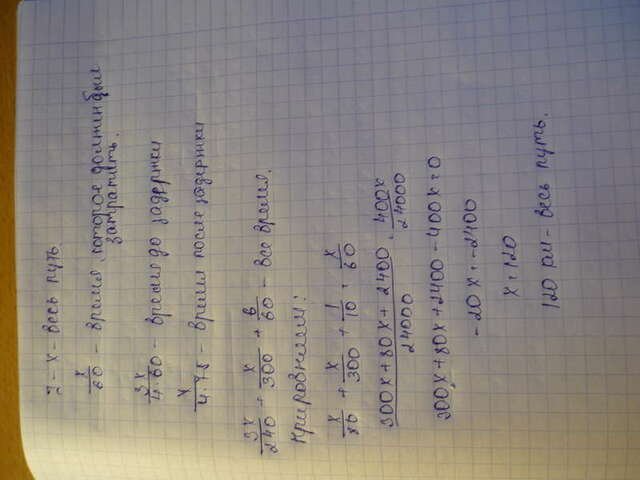 7 - x - весь путь
x/60 - время, которое должен был
затратить.
3x/4·60 - время до задержки
x/4·75 - время после задержки
3x/240 + x/300 + 6/60 - все время.
Приравниваем:
x/80 + x/300 + 1/10 = x/60
300x + 80x + 2400/24000 = 400x/24000
300x + 80x + 2400 - 400x = 0
-20x = -2400
x = 120
120 км - весь путь.